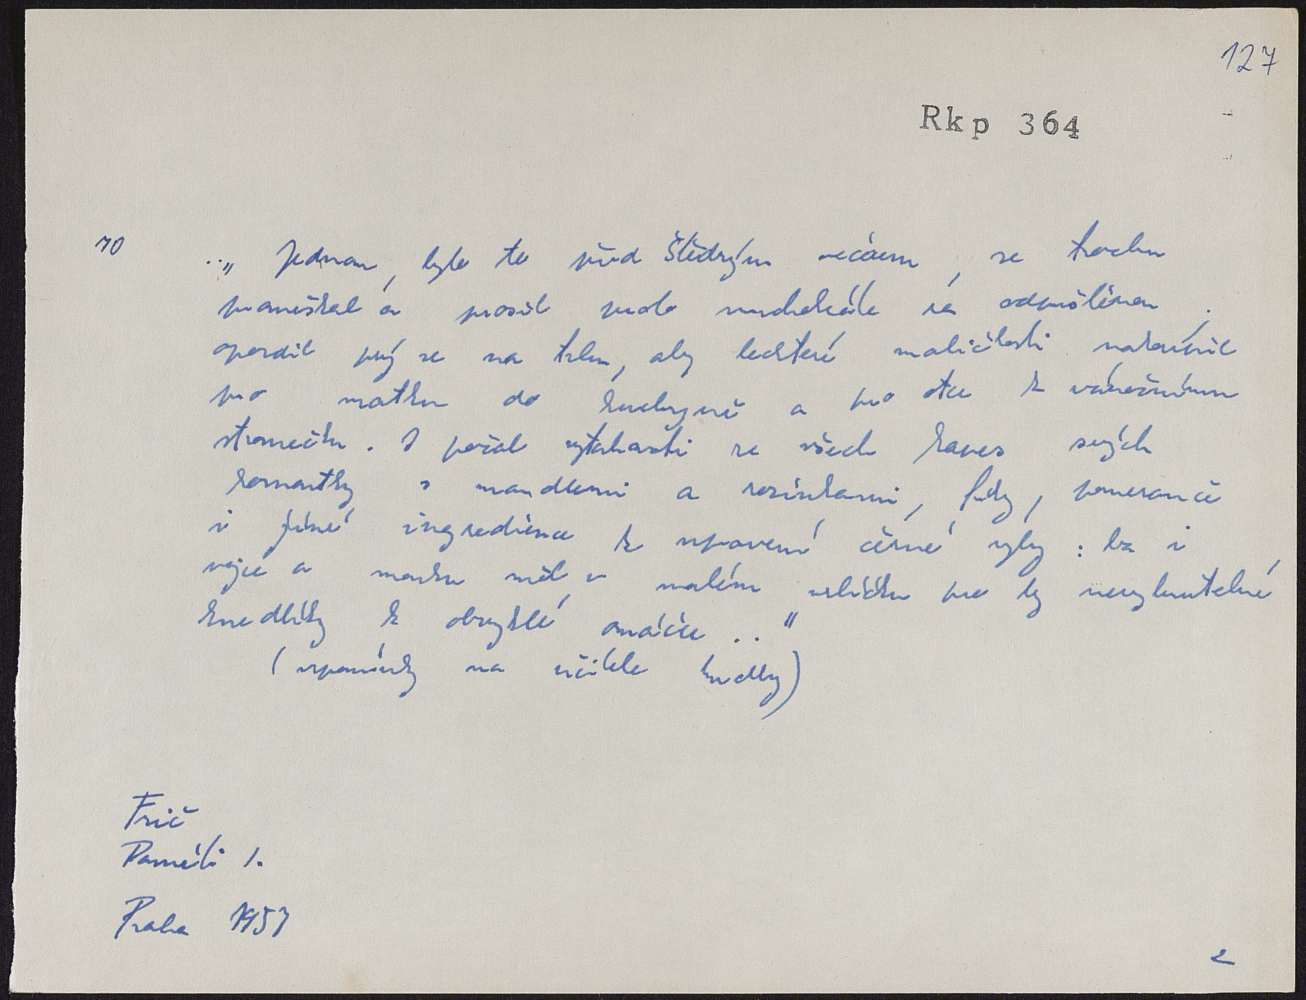 127
Rkp 364
70
..„ Jednou, bylo to před Štědrým večerem, se trochu
promeškal a prosil proto za odpuštěnou.
opozdil prý se na trhu, aby leckteré maličkosti
pro matku do kuchyně a pro otce k vánočnímu
stromečku. I počal vytahovati ze všech kapes svých
kornoutky s mandlemi a rozinkami, fíky, pomeranče
i jiné ingredience k upravení černé ryby: ba i
vejce a mouku měl v malém uzlíčku pro ty nevyhnutelné
knedlíky k obvyklé omáčce .."
(vzpomínky na učitele)
Frič
Paměti I.
Praha 1957
2